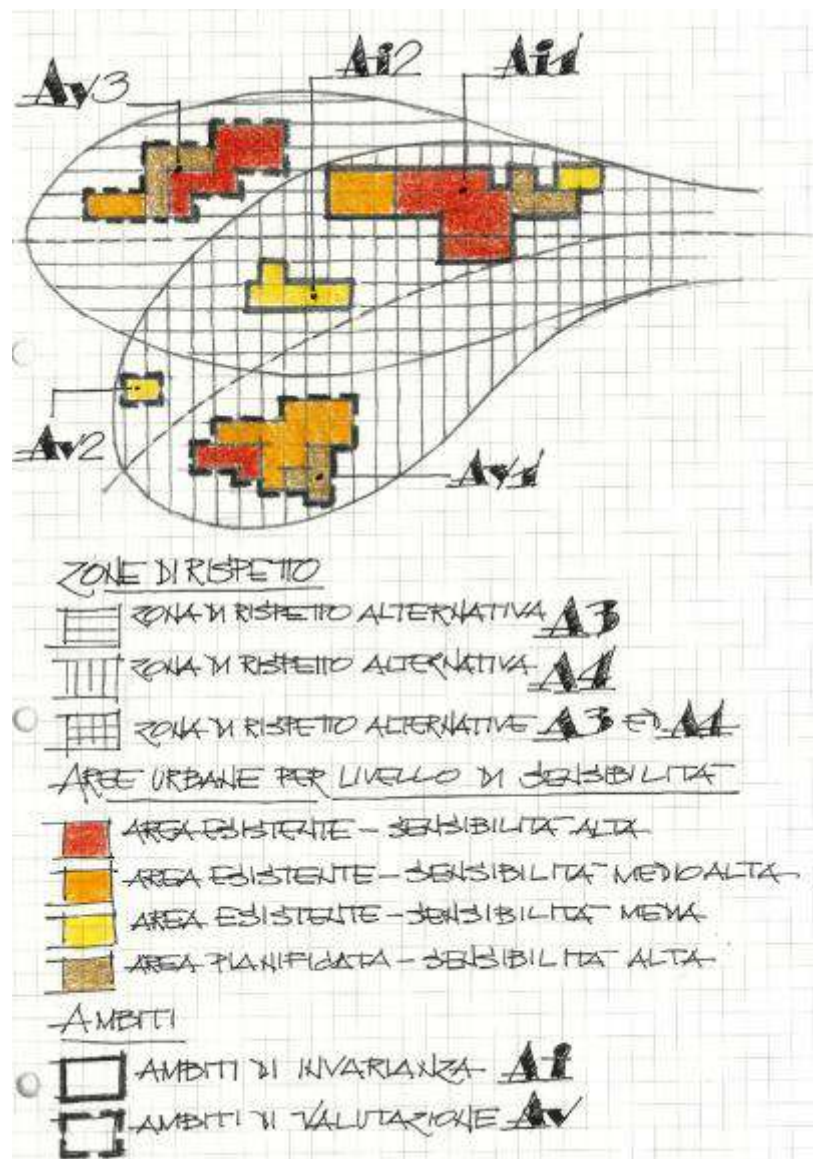 Ai2 Ai1
Av3
Av2
Av1
ZONE DI RISPETTO
ZONA DI RISPETTO ALTERNATIVA A3
ZONA DI RISPETTO ALTERNATIVA A4
ZONA DI RISPETTO ALTERNATIVE A3 ED A4
AREE URBANE PER LIVELLO DI SENSIBILITA'
AREA ESISTENTE - SENSIBILITA' ALTA
AREA ESISTENTE - SENSIBILITA' MEDIOALTA
AREA ESISTENTE - SENSIBILITA' MEDIA
AREA PIANIFICATA - SENSIBILITA' ALTA
AMBITI
AMBITI DI INVARIANZA Ai
AMBITI DI VALUTAZIONE Av